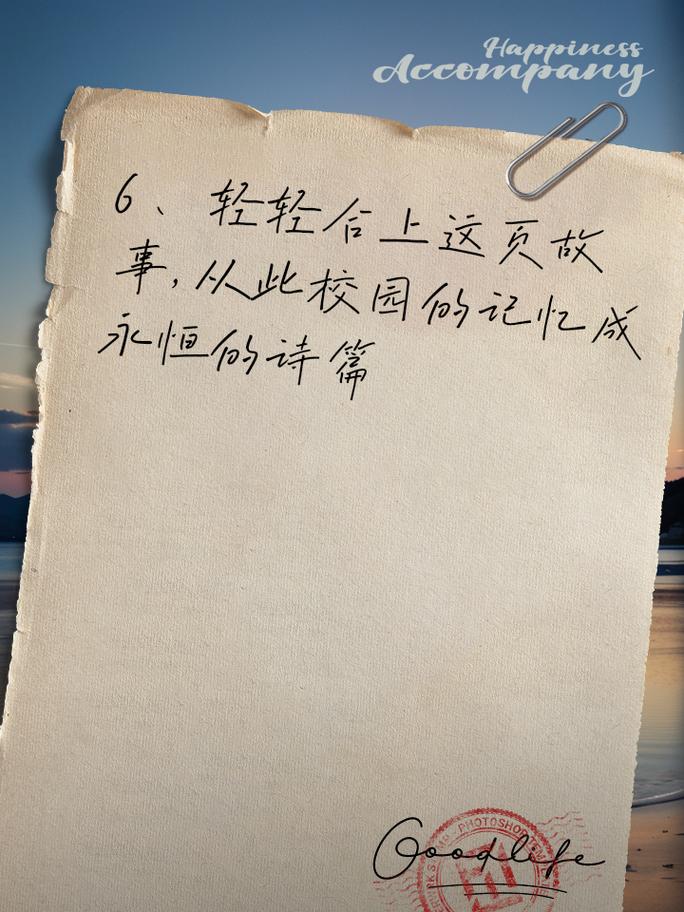 Happiness
Accompany
6、轻轻合上这页故
事,从此校园的记忆成
永恒的诗篇
PHOTOSHOP
Goodlife